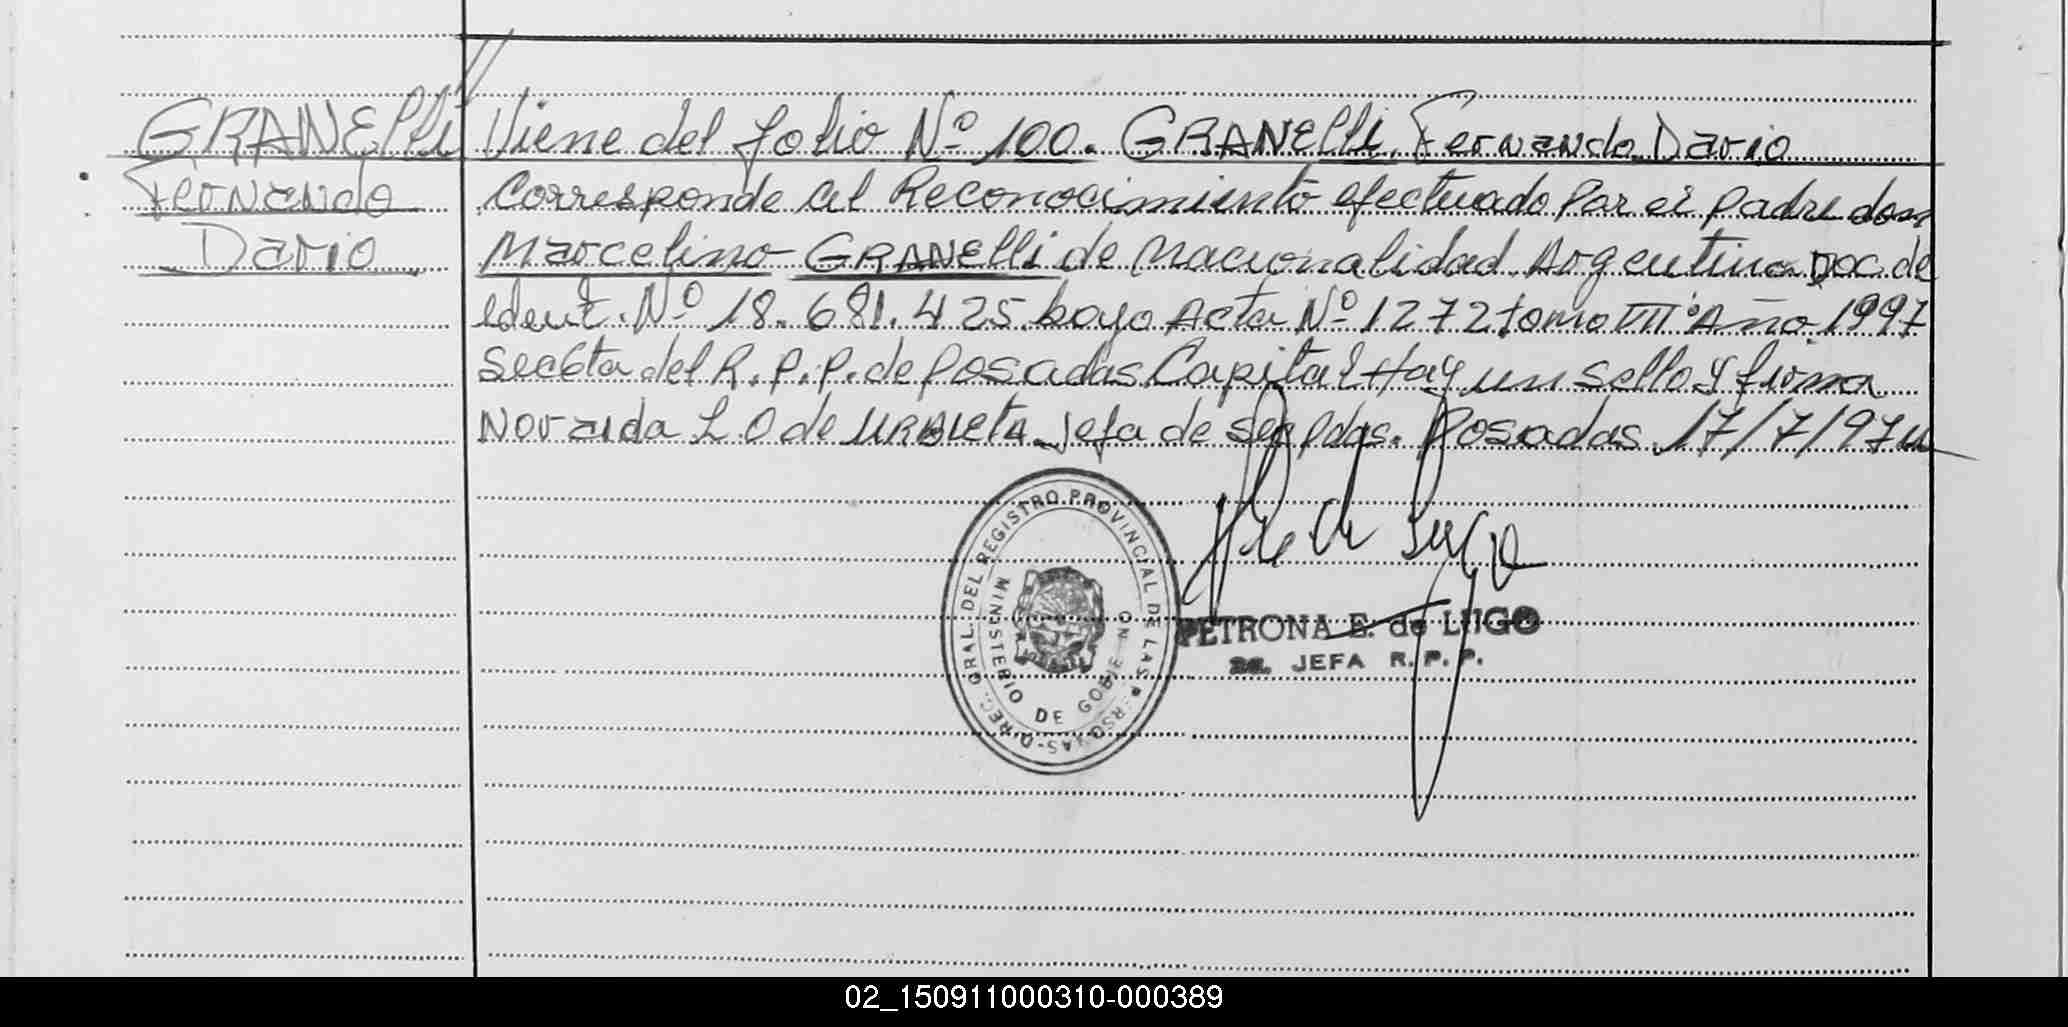 GRANElli
Fernando
Dario
Viene del folio Nº 100. GRANElli, Fernando Dario
Corresponde al Reconocimiento efectuado por el padre don
Marcelino GRANElli de nacionalidad Argentina Doc. de
ident. Nº 18.681.425 bajo Acta Nº 1272 tomo VIIº Año 1997
Sec 6ta del R.P.P. de Posadas Capital Hay un sello y firma
Noraida L. O de URBIETA Jefa de Sec Pdas. Posadas 17/7/97
DIREC. GRAL. DEL REGISTRO PROVINCIAL DE LAS PERSONAS
MINISTERIO DE GOBIERNO
PETRONA E. de LUGO
2a. JEFA R. P. P.
02_150911000310-000389